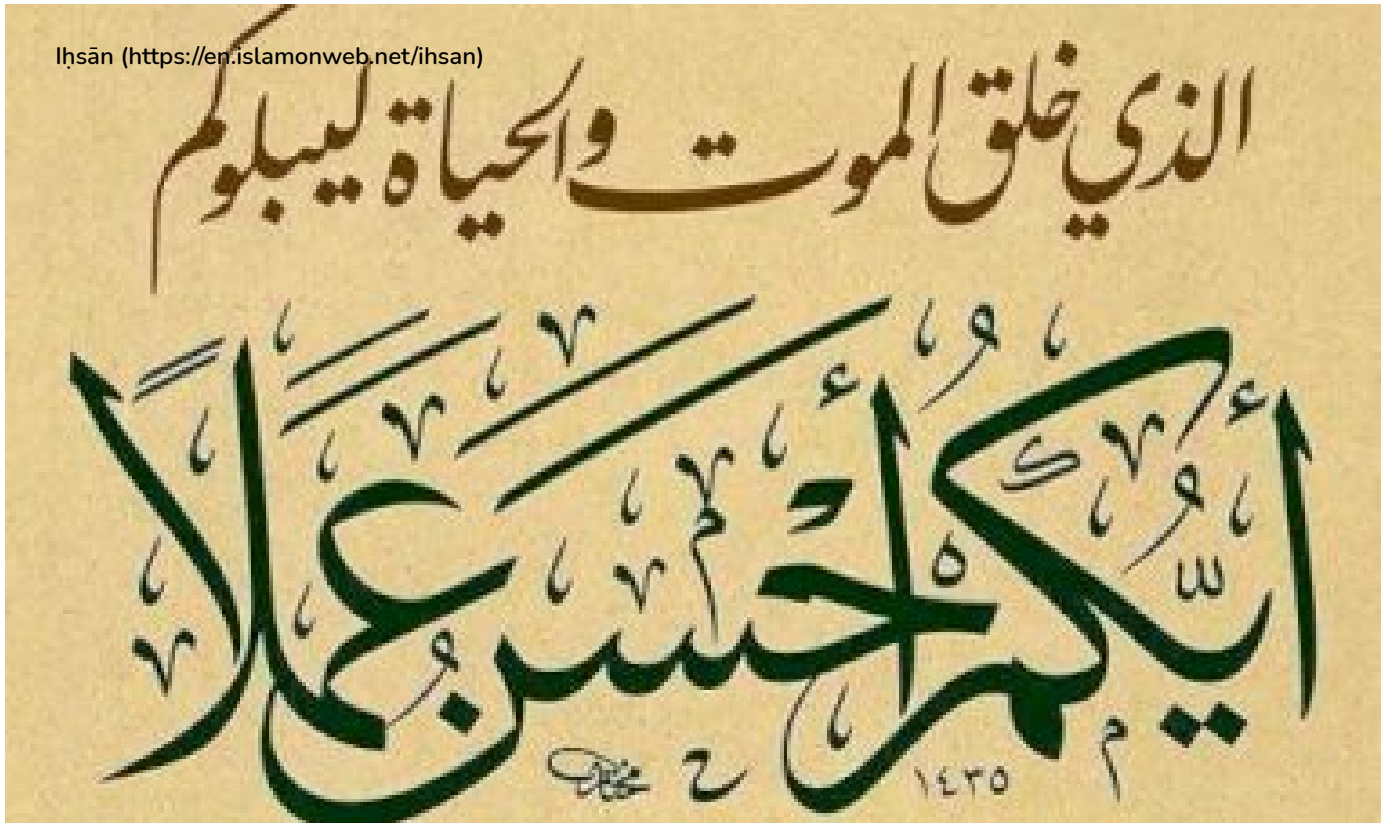 Iḥsān (https://en.islamonweb.net/ihsan)
الذي خلق الموت والحياة ليبلوكم
أَيُّكُمْ أَحْسَنُ عَمَلًا
١٤٣٥